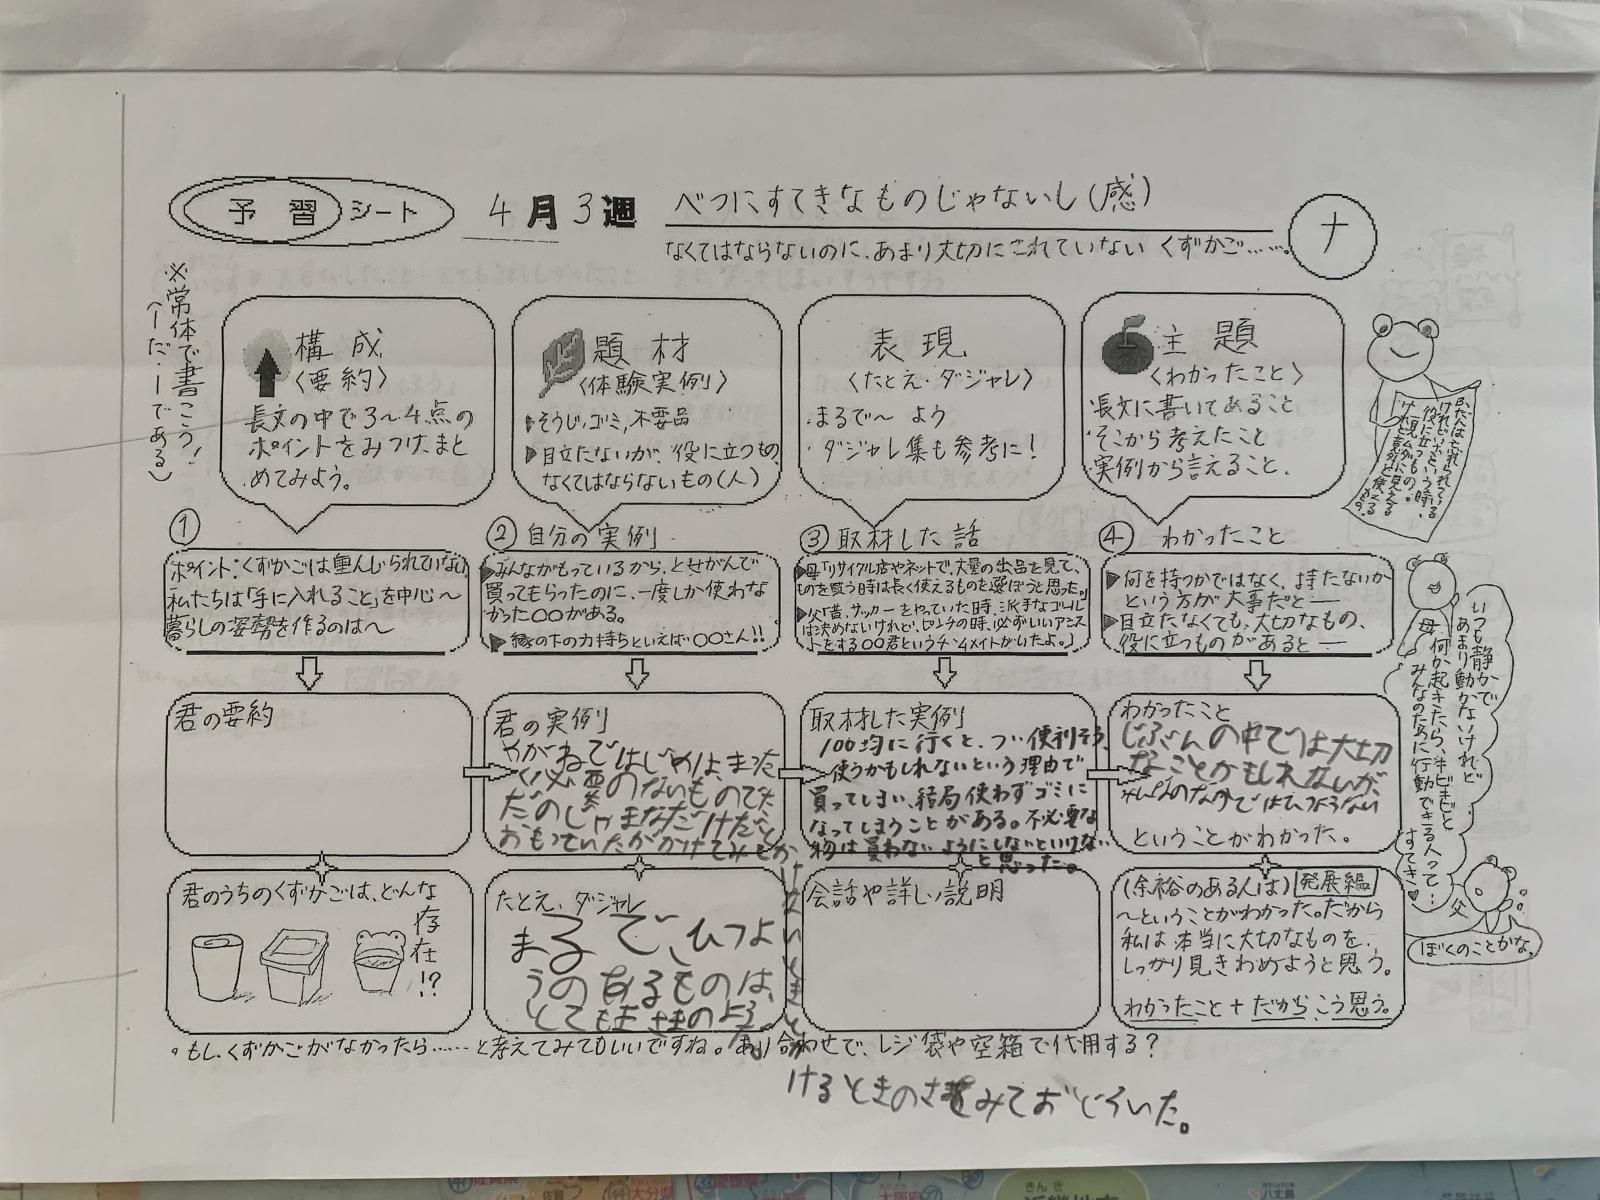 予習シート
4月3週
べつにすてきなものじゃないし(感)
なくてはならないのに、あまり大切にされていない くずかご……。
ナ
※常体で書こう!
(ーだ・ーである)
構成
〈要約〉
長文の中で3〜4点の
ポイントをみつけ、まと
めてみよう。
題材
〈体験実例〉
・そうじ、ゴミ、不要品
▶目立たないが、役に立つもの、
なくてはならないもの(人)
表現
〈たとえ・ダジャレ〉
・まるで〜よう
・ダジャレ集も参考に!
主題
〈わかったこと〉
・長文に書いてあること
・そこから考えたこと
・実例から言えること、
ふだんは忘れられている
けれどいざという時、
役に立つもの。
①
ポイント:くずかごは重んじられていない
私たちは「手に入れること」を中心〜
暮らしの姿勢を作るのは〜
②自分の実例
▶みんながもっているから、とせがんで
買ってもらったのに、一度しか使わな
かった〇〇がある。
▶縁の下の力持ちといえば・〇〇さん!!
③取材した話
▶母「リサイクル店やネットで、大量の出品を見て、
ものを買う時は長く使えるものを選ぼうと思った。」
▶父「昔、サッカーをやっていた時、派手なゴール
は決めないけれど、ピンチの時、必ずいいアシス
トをする〇〇君というチームメイトがいたよ。」
④わかったこと
▶何を持つかではなく、持たないか
という方が大事だと―
▶目立たなくても、大切なもの、
役に立つものがあると―
いつも静かで
あまり動かないけれど
何か起きたら、キビキビと
みんなのために行動できる人って…
すてき♥
母
君の要約
君の実例
めがねではじめは、また
く必要のないものでた
だのじゃまなだけだと
おもっていたがかけてみとか
けないときとか
けるときのさをみておどろいた。
取材した実例
100均に行くと、つい便利そう、
使うかもしれないという理由で
買ってしまい、結局使わずゴミに
なってしまうことがある。不必要な
物は買わないようにしないといけない
と思った。
わかったこと
じぶんの中では大切
なことかもしれないが、
みんなのな中ではひつようない
ということがわかった。
君のうちのくずかごは、どんな
存在!?
たとえ、ダジャレ
まるで、ひつよ
うのあるものは、
会話や詳しい説明
(余裕のある人は)発展編
〜ということがわかった。だから
私は本当に大切なものを、
しっかり見きわめようと思う。
わかったこと+だから、こう思う。
父
ぼくのことかな。
。もし、くずかごがなかったら……と考えてみてもいいですね。あり合わせで、レジ袋や空箱で代用する?
佐賀県
佐賀
44大分県
愛媛県
大阪府
27
きんき
八丈島